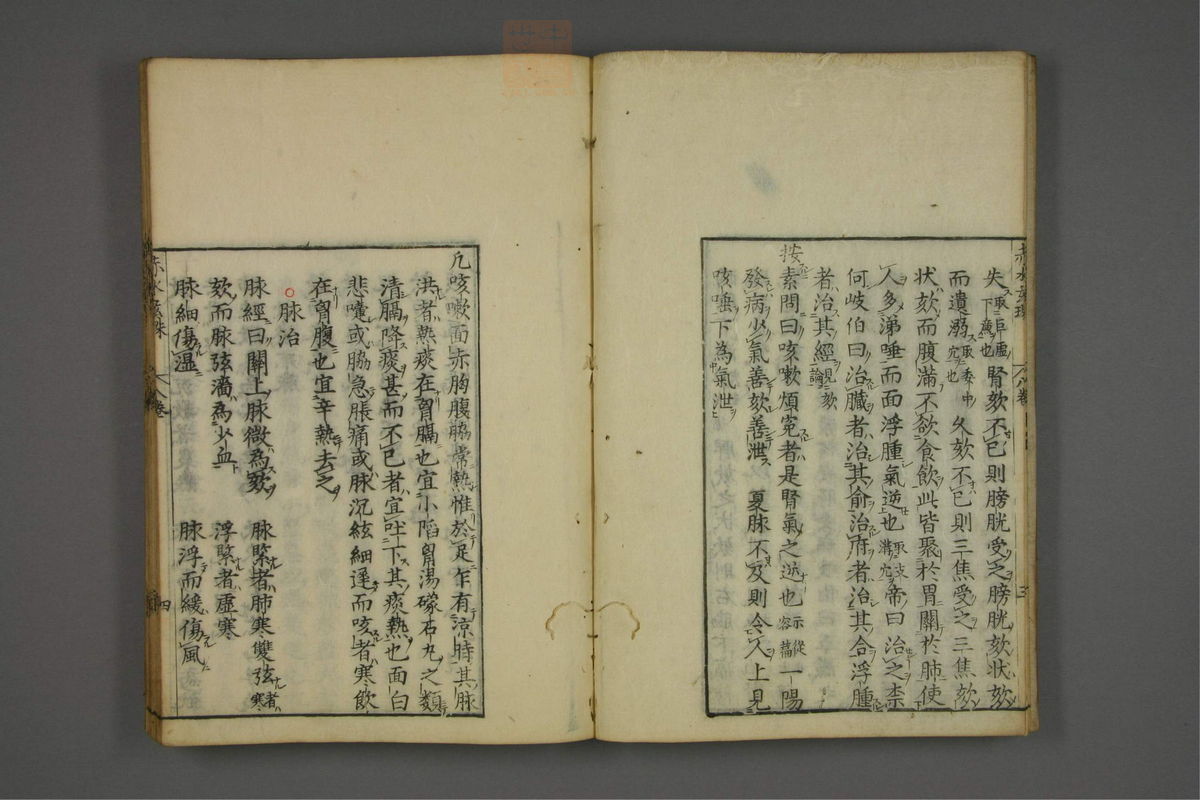 失取巨虚下廉也腎欬不已則膀胱受之膀胱欬状欬
而遺溺取委中穴也久欬不已則三焦受之三焦欬
状欬而腹滿不欲食飲此皆聚於胃關於肺使
人多涕唾而面浮腫氣逆也帝曰治之柰
何岐伯曰治臟者治其俞治府者治其合浮腫
者治其經見欬論
按素問曰咳嗽煩冤者是腎氣之逆也示從容論一陽
發病少氣善欬善泄 夏脉不及則令人上見
咳唾下為氣泄
赤水玄珠 八卷 三
凡咳嗽面赤胸腹脇常熱惟於足乍有涼時其脉
洪者熱痰在胃膈也宜小陷胃湯礞石丸之類
清膈降痰甚而不已者宜吐下其痰熱也面白
悲嚏或脇急脹痛或脉沉絃細遲而咳者寒飲
在胃腹也宜辛熱去之
脉治
脉經曰關上脉微為欬 脉緊者肺寒雙弦者寒
欬而脉弦濇為少血 浮緊者虛寒
脉細傷濕 脉浮而緩傷風
赤水玄珠 八卷 四